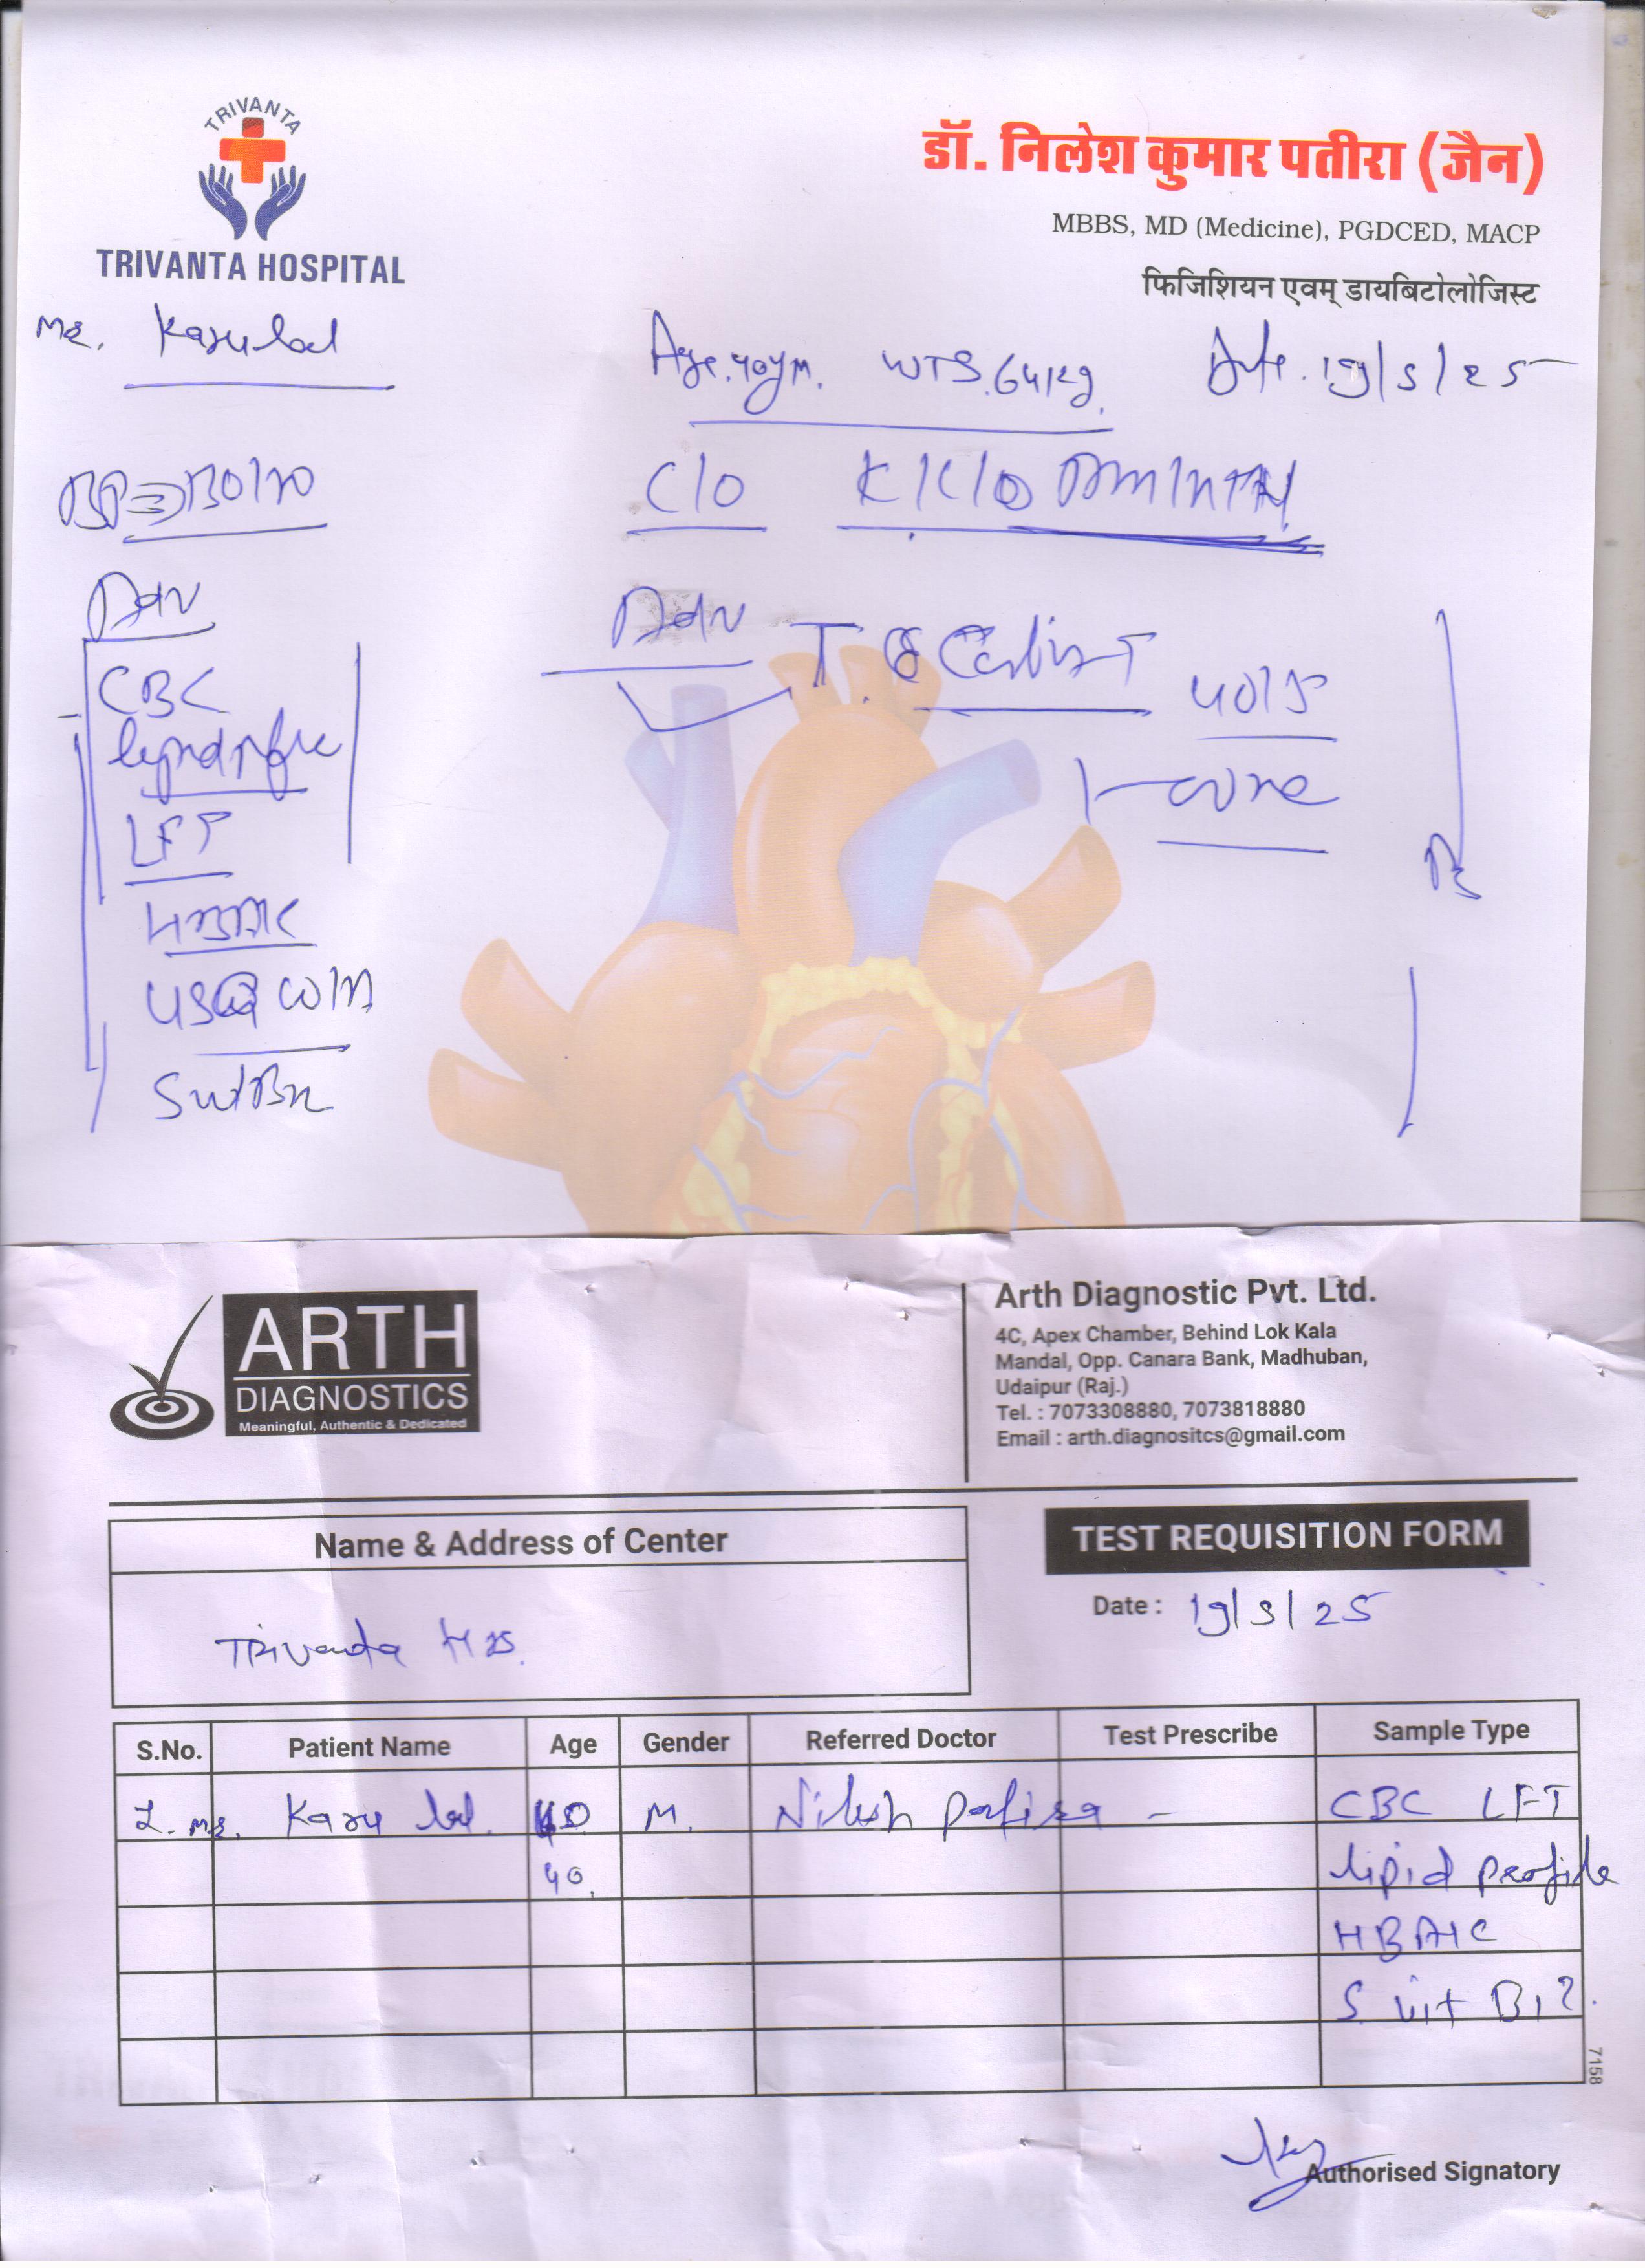 TRIVANTA
TRIVANTA HOSPITAL
डॉ. निलेश कुमार पतीरा (जैन)
MBBS, MD (Medicine), PGDCED, MACP
फिजिशियन एवम् डायबिटोलोजिस्ट
Mr. Karulal
Age. 40y M. WTS. 64kg. Date. 19/3/25
C/O K/C/O DM/HTN
Adv
CBC
LFT
HBA1C
USG
Adv T.
40/5
Rx
ARTH
DIAGNOSTICS
Meaningful, Authentic & Dedicated
Arth Diagnostic Pvt. Ltd.
4C, Apex Chamber, Behind Lok Kala
Mandal, Opp. Canara Bank, Madhuban,
Udaipur (Raj.)
Tel. : 7073308880, 7073818880
Email : arth.diagnositcs@gmail.com
Name & Address of Center
Trivanta
TEST REQUISITION FORM
Date : 19/3/25
S.No. Patient Name Age Gender Referred Doctor Test Prescribe Sample Type
1. Mr. Karu lal. 40 M. Nilesh Patira - CBC LFT
40. lipid profile
HBA1C
S vit B12.
7158
Authorised Signatory